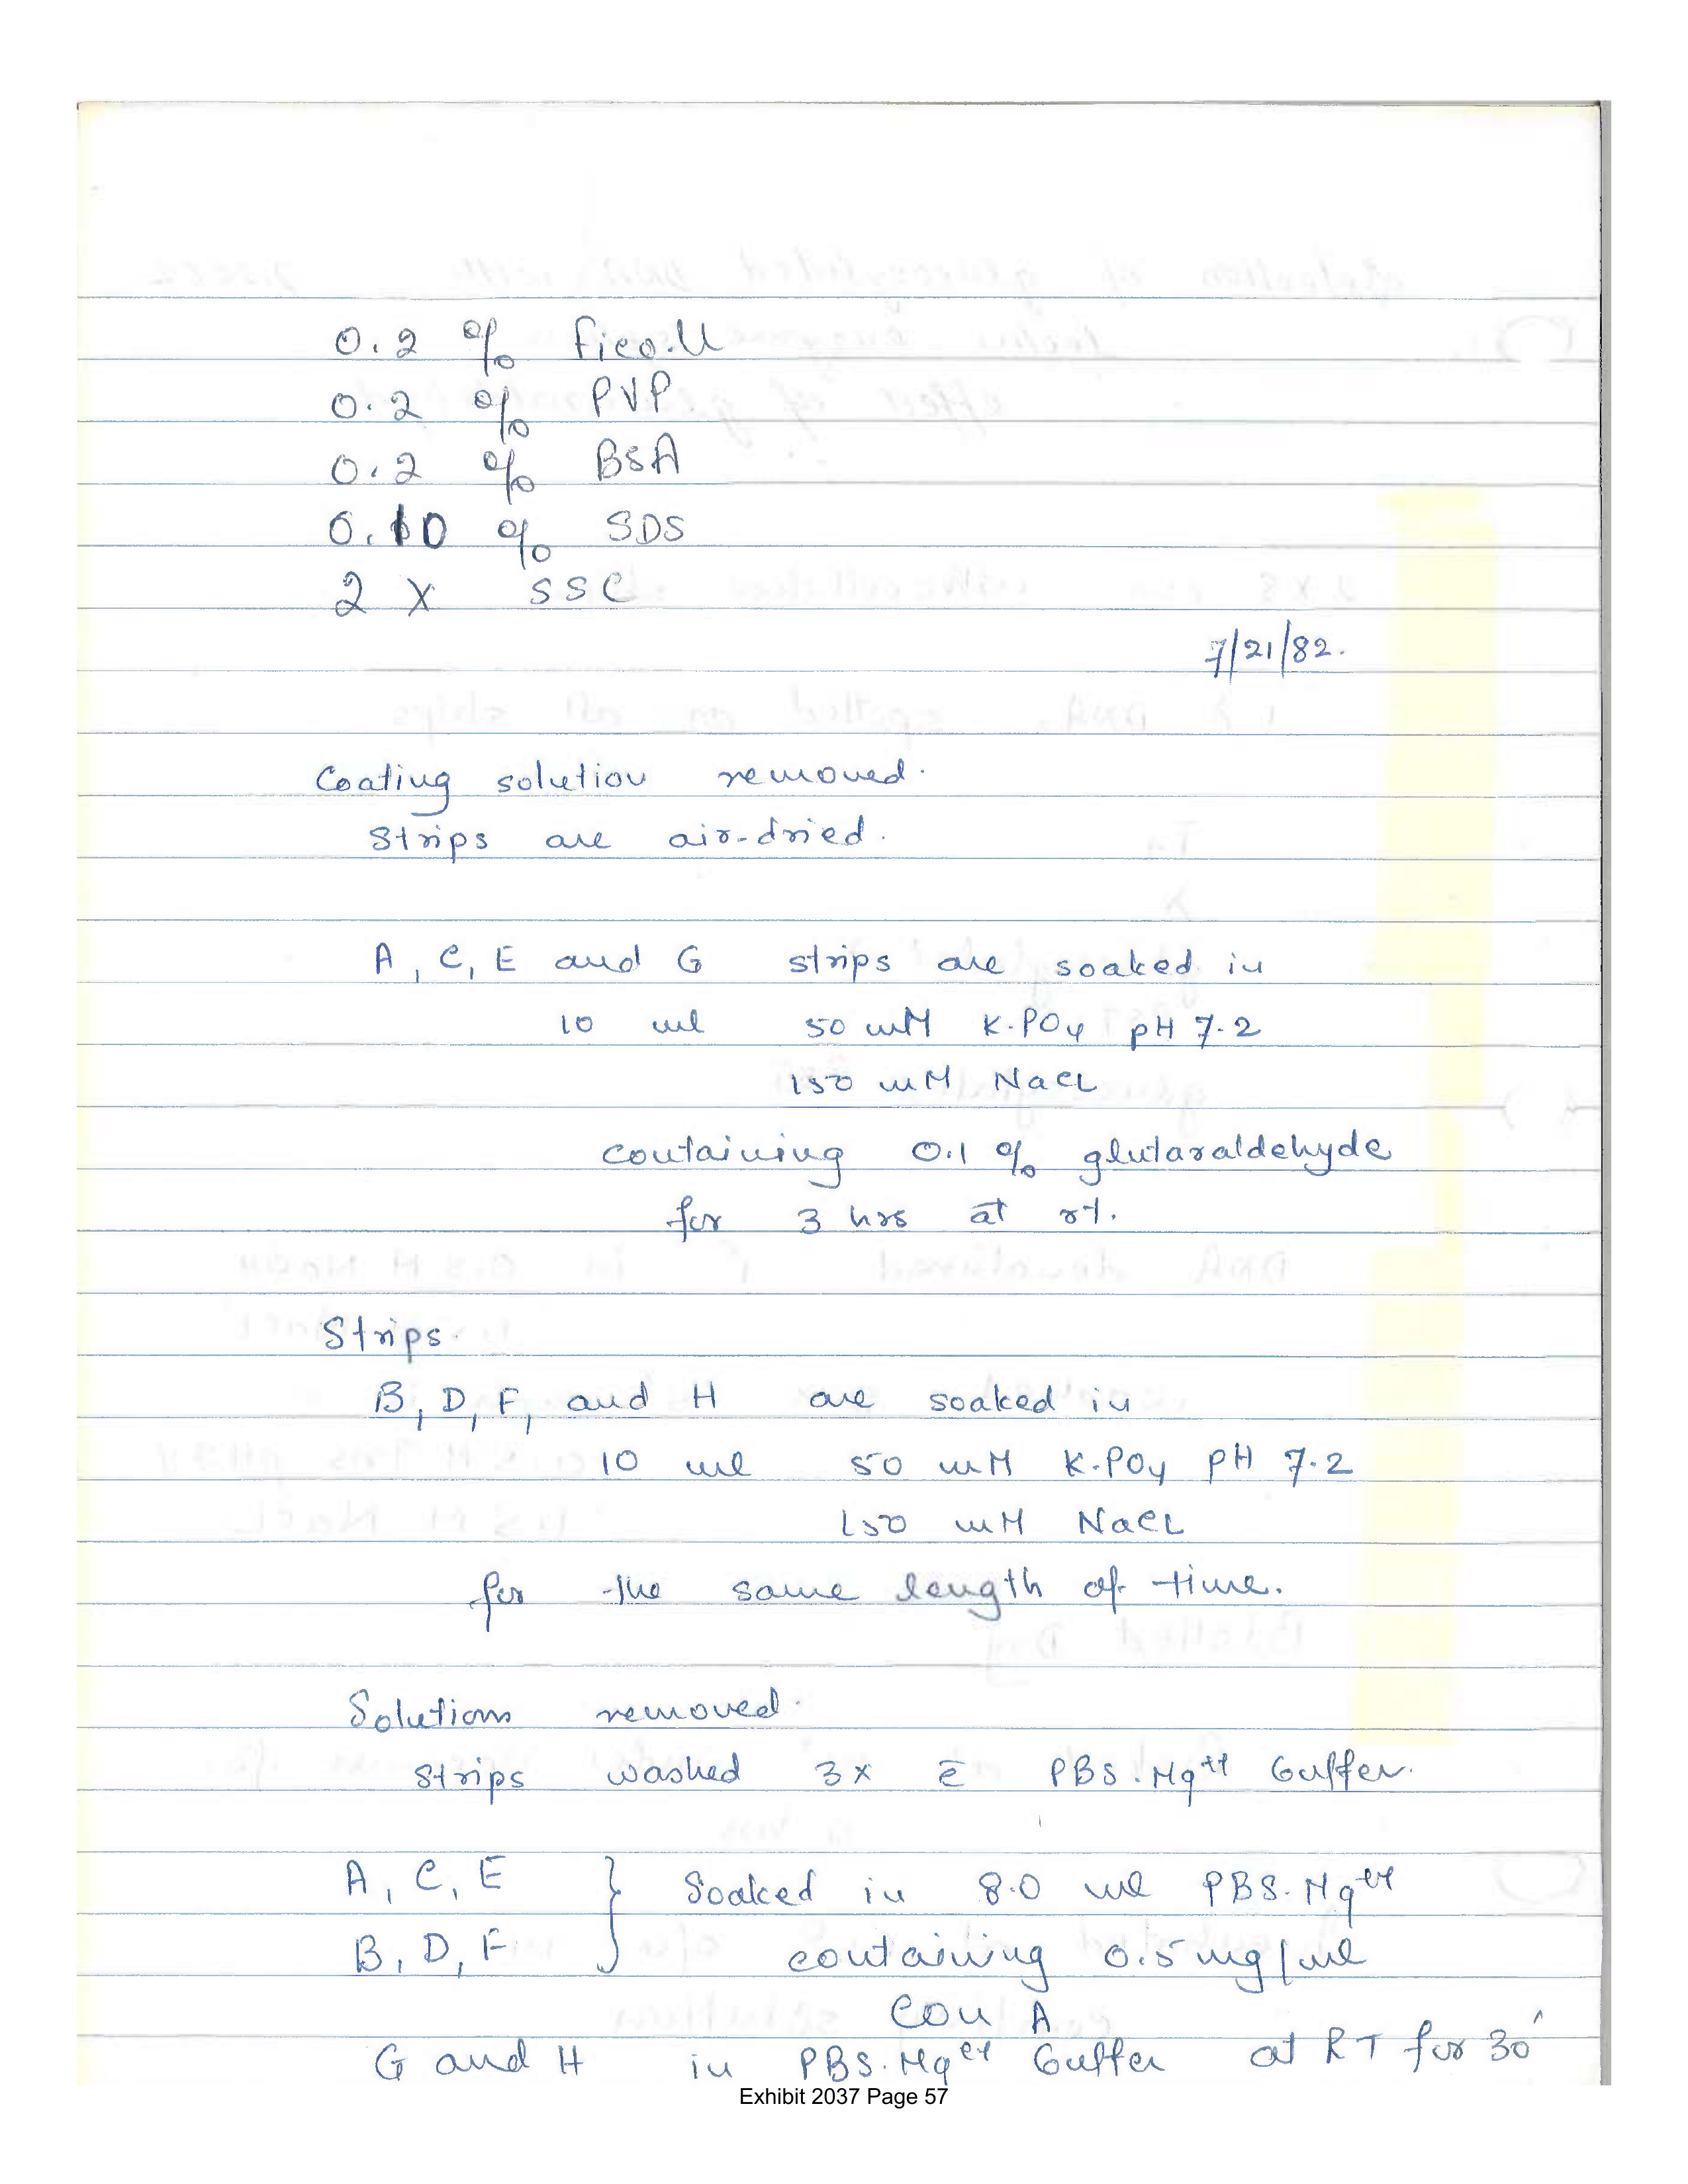 0.2 % Ficoll
0.2 % PVP
0.2 % BSA
0.10 % SDS
2 X SSC
7/21/82.
Coating solution removed.
Strips are air-dried.
A, C, E and G strips are soaked in
10 ml 50 mM K.PO4 pH 7.2
150 mM NaCl
containing 0.1 % glutaraldehyde
for 3 hrs at rt.
Strips.
B, D, F, and H are soaked in
10 ml 50 mM K.PO4 pH 7.2
150 mM NaCl
for the same length of time.
Solutions removed.
Strips washed 3x c̄ PBS.Mg++ Buffer.
A, C, E } Soaked in 8.0 ml PBS.Mg++
B, D, F containing 0.5 mg/ml
Con A
G and H in PBS.Mg++ Buffer at RT for 30'
Exhibit 2037 Page 57